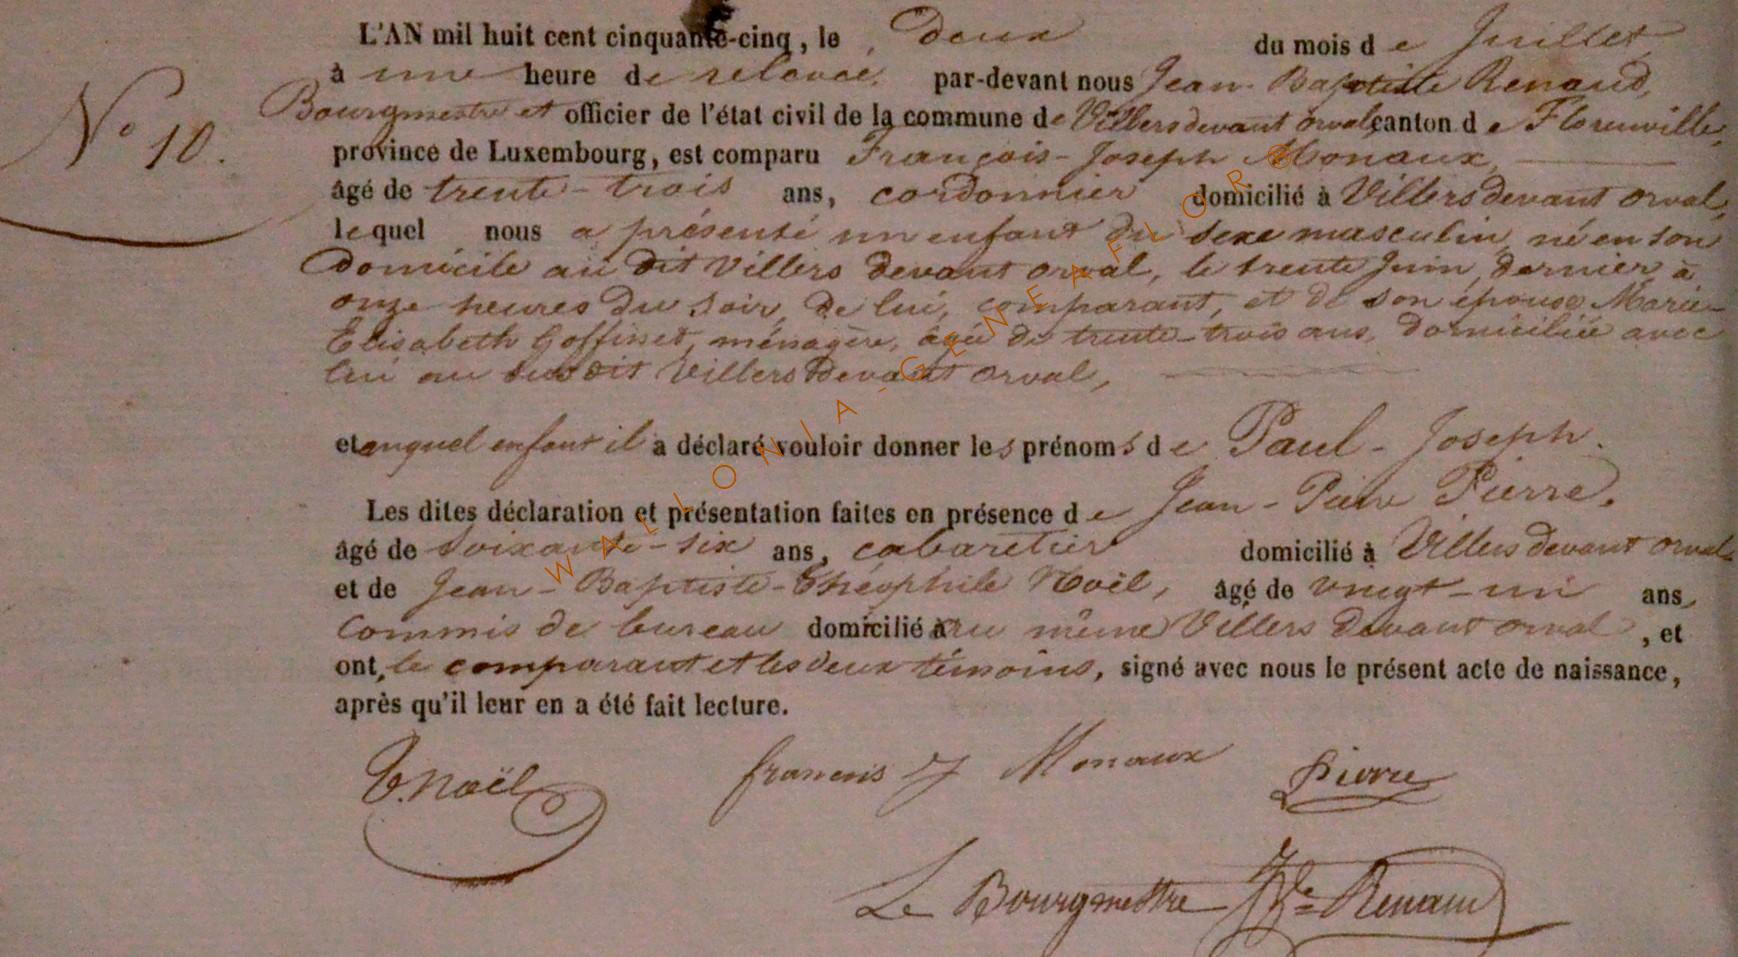 L'AN mil huit cent cinquante-cinq, le deux du mois de Juillet
à une heure de relevée, par-devant nous Jean-Baptiste Renaud,
Bourgmestre et officier de l'état civil de la commune de Villers devant orval, canton de Florenville,
N° 10.
province de Luxembourg, est comparu François-Joseph Monaux,
âgé de trente-trois ans, cordonnier domicilié à Villers devant orval,
lequel nous a présenté un enfant du sexe masculin, né en son
Domicile au dit Villers devant orval, le trente Juin, dernier, à
onze heures du soir, de lui, comparant, et de son épouse Marie-
Elisabeth Goffinet, ménagère, âgée de trente-trois ans, domiciliée avec
lui au susdit Villers devant orval,
et auquel enfant il a déclaré vouloir donner les prénoms de Paul-Joseph.
Les dites déclaration et présentation faites en présence de Jean-Pierre Pierre,
âgé de soixante-six ans, cabaretier domicilié à Villers devant orval
et de Jean-Baptiste-Théophile Noël, âgé de vingt-un ans,
Commis de bureau domicilié au même Villers devant orval, et
ont, le comparant et les deux témoins, signé avec nous le présent acte de naissance,
après qu'il leur en a été fait lecture.
T. Noël francois J Monaux Pierre
Le Bourgmestre JBte Renaud
WALLONIA-GENEAFLOR©